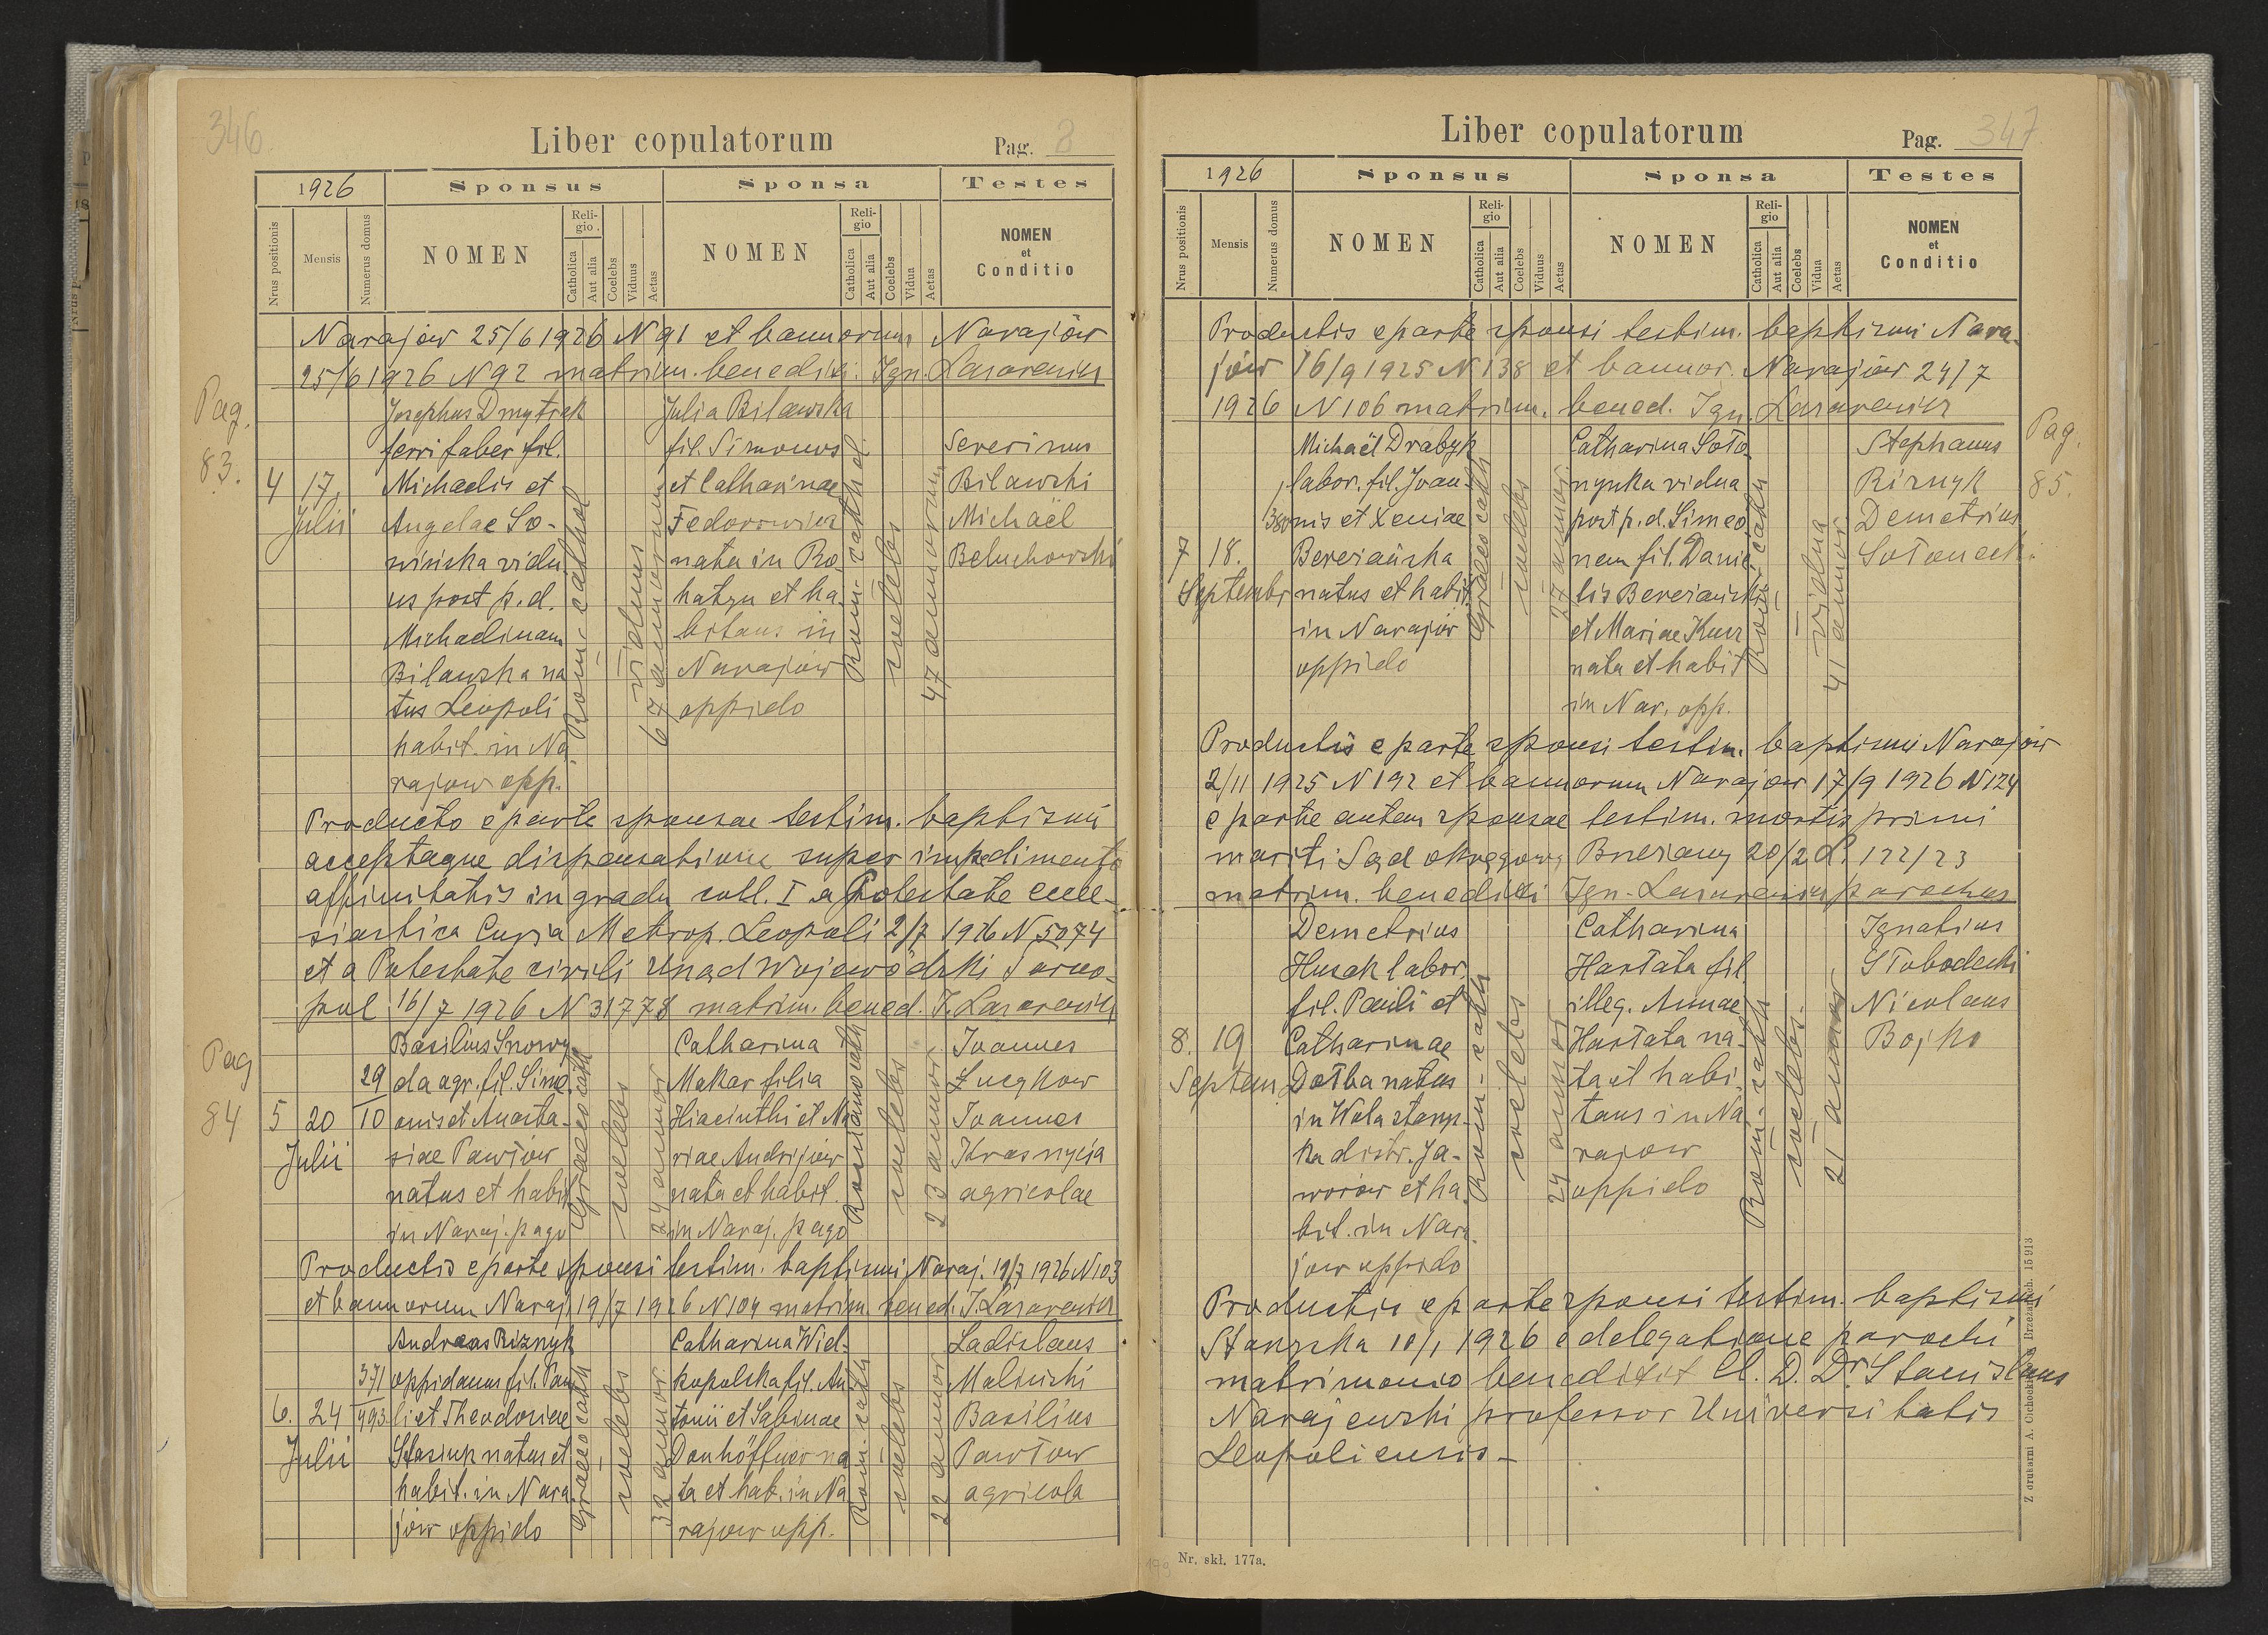 346
Liber copulatorum
Pag. 8
1926
Sponsus
Sponsa
Testes
Nrus positionis
Mensis
Numerus domus
NOMEN
Religio
Catholica
Aut alia
Coelebs
Viduus
Aetas
NOMEN
Religio
Catholica
Aut alia
Coelebs
Vidua
Aetas
NOMEN
et
Conditio
Narajów 25/6 1926 N 91 et bannorum Narajów
25/6 1926 N 92 matrim. benedixi. Ign. Lazarewicz
Pag.
83.
4
17,
Julii
Josephus Dmytrak
ferri faber fil.
Michaelis et
Angelae So-
wińska vidu
us post p. d.
Michaelinam
Bilawska na
tus Leopoli
habit. in Na
rajow opp.
Rom.-cathol
viduus
67 annorum
Julia Bilawska
fil. Simonis
et Catharinae
Fedorowicz
nata in Ro-
hatyn et ha-
bitans in
Narajów
oppido
Rom.-cathol
coelebs
47 annorum
Severinus
Bilawski
Michaël
Beluchowski
Producto e parte sponsae testim. baptismi
acceptaque dispensatione super impedimento
affinitatis in gradu coll. I a Potestate eccle-
siastica Curia Metrop. Leopoli 2/7 1926 N 5074
et a Potestate civili Urząd Wojewódzki Tarno-
pol 16/7 1926 N 31778 matrim. bened. I. Lazarewicz
Pag
84
5
20
Julii
29
10
Basilius Snowy
da agr. fil. Sime
onis et Anasta-
siae Pawłów
natus et habit
in Naraj. pago
Graeco cath
coelebs
24 annor
Catharina
Makar filia
Hiacinthi et Ma
riae Andrijów
nata et habit.
in Naraj. pago
Romano cath
coelebs
23 annor.
Joannes
Łuczkow
Joannes
Krasnycia
agricolae
Productis e parte sponsi testim. baptismi Naraj. 19/7 1926 N 103
et bannorum Naraj. 19/7 1926 N 104 matrim. bened. I. Lazarewicz
6.
24
Julii
371
493
Andreas Riznyk
oppidanus fil. Pau
li et Theodoriae
Stasiuk natus et
habit. in Nara
jow oppido
Graeco cath
coelebs
32 annor.
Catharina Wiel-
kopolska fil. An
tonii et Sabinae
Donhöffner na
ta et hab. in Na
rajow opp.
Rom.-cath
coelebs
22 annor
Ladislaus
Malinski
Basilius
Pawłow
agricola
Liber copulatorum
Pag. 347
1926
Sponsus
Sponsa
Testes
Nrus positionis
Mensis
Numerus domus
NOMEN
Religio
Catholica
Aut alia
Coelebs
Viduus
Aetas
NOMEN
Religio
Catholica
Aut alia
Coelebs
Vidua
Aetas
NOMEN
et
Conditio
Productis e parte sponsi testim. baptismi Nara-
jów 16/9 1925 N 138 et bannor. Narajów 24/7
1926 N 106 matrim. bened. Ign. Lazarewicz
Pag.
85.
7
18.
Septembr
380
Michaël Drabyk
labor. fil. Joan
nis et Xeniae
Bereziańska
natus et habit
in Narajów
oppido
Graeco cath
coelebs
27 annor
Catharina Soło-
nynka vidua
post p. d. Simeo
nem fil. Danie
lis Bereziański
et Mariae Kucz
nata et habit
in Nar. opp.
Rom.-cath
vidua
41 annor
Stephanus
Riznyk
Demetrius
Productis e parte sponsi testim. baptismi Narajów
2/11 1925 N 192 et bannorum Narajów 17/9 1926 N 124
e parte autem sponsae testim. mortis primi
mariti Sąd okręgowy Brzeżany 20/2 L. 122/23
matrim. benedixi Ign. Lazarewicz parochus
8.
19
Septem
Demetrius
Husak labor.
fil. Pauli et
Catharinae
Dołba natus
in Wola starzys-
ka distr. Ja-
worów et ha
bit. in Nara
jow oppido
Rom.-cath
coelebs
24 annor
Catharina
Hartata fil
illeg. Annae
Hartata na-
ta et habi-
tans in Na
rajow
oppido
Rom.-cath
coelebs.
21 annor
Ignatius
Słobodecki
Nicolaus
Bojko
Productis e parte sponsi testim. baptismi
Starzyska 10/1 1926 e delegatione parochi
matrimonio benedixit Cl. D. Dr Stanislaus
Narajewski professor Universitatis
Leopoliensis -
Nr. skł. 177a.
Z drukarni A. Cichockiego Brzeżanach. 15913